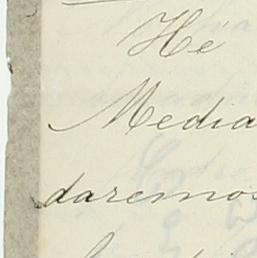 He
Media
daremos